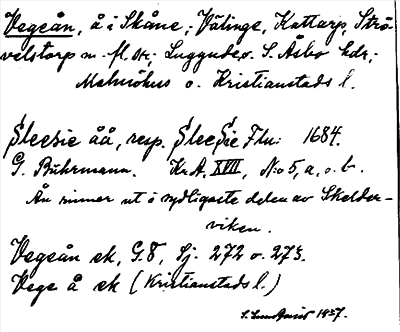 Vegeån, å i Skåne; Välinge, Kattarp, Strö-
velstorp m. fl. snr; Luggude o. S. Åsbo hdr;
Malmöhus o. Kristianstads l.
Sleesie åå, resp. Sleesie Flu: 1684.
G. Buhrmann. Kr.A. XVII, N:o 5, a, o. b.
Ån rinner ut i sydligaste delen av Skelder-
viken.
Vegeån ek, G.8, Sj. 272 o. 273.
Vege å ek (Kristianstads l.)
1937.